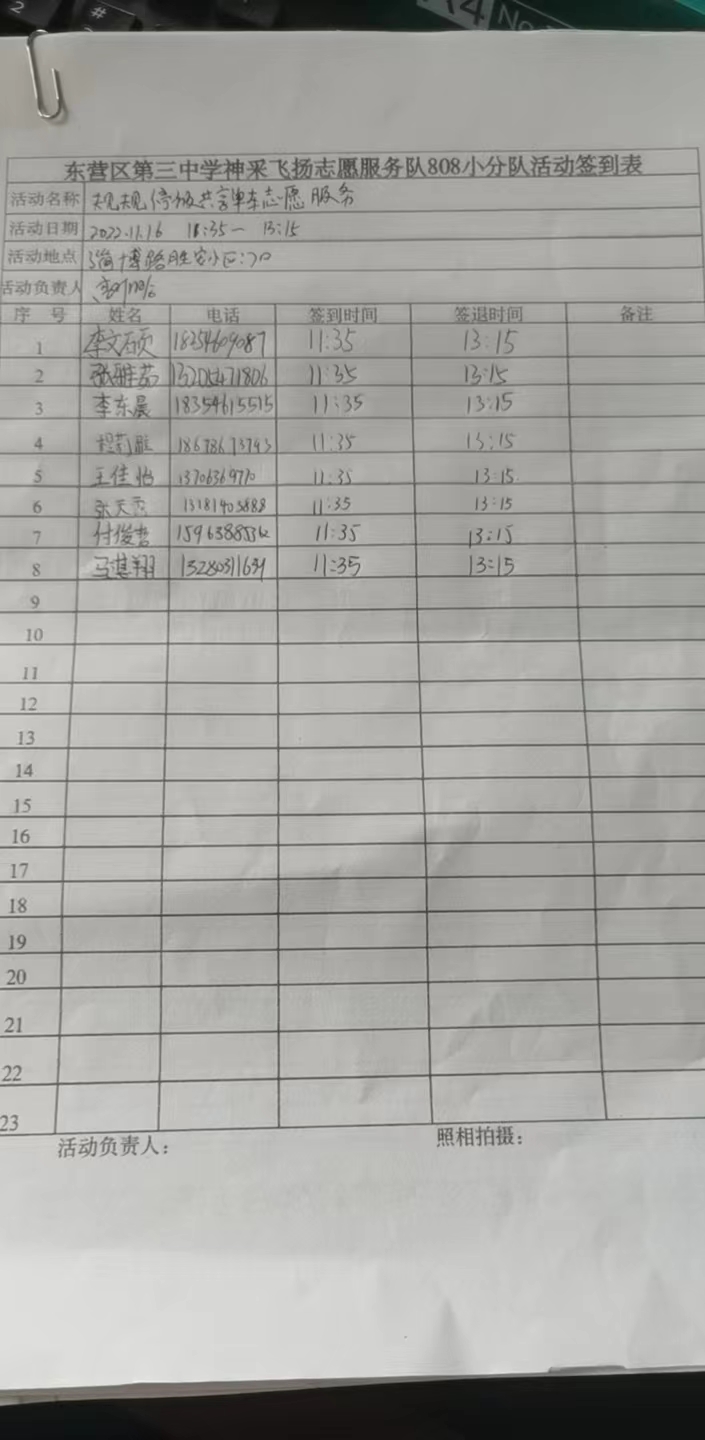 东营区第三中学神采飞扬志愿服务队808小分队活动签到表
活动名称 规规停放共享单车志愿服务
活动日期 2022.11.16 11:35— 13:15
活动地点 淄博路胜安小区门口
活动负责人
序号 姓名 电话 签到时间 签退时间 备注
1 李文硕 18354609087 11:35 13:15
2 张雅茹 13205471806 11:35 13:15
3 李东晨 18354615515 11:35 13:15
4 11:35 13:15
5 王佳怡 11:35 13:15
6 张天秀 11:35 13:15
7 付俊哲 11:35 13:15
8 马淇翔 11:35 13:15
9
10
11
12
13
14
15
16
17
18
19
20
21
22
23
活动负责人: 照相拍摄: